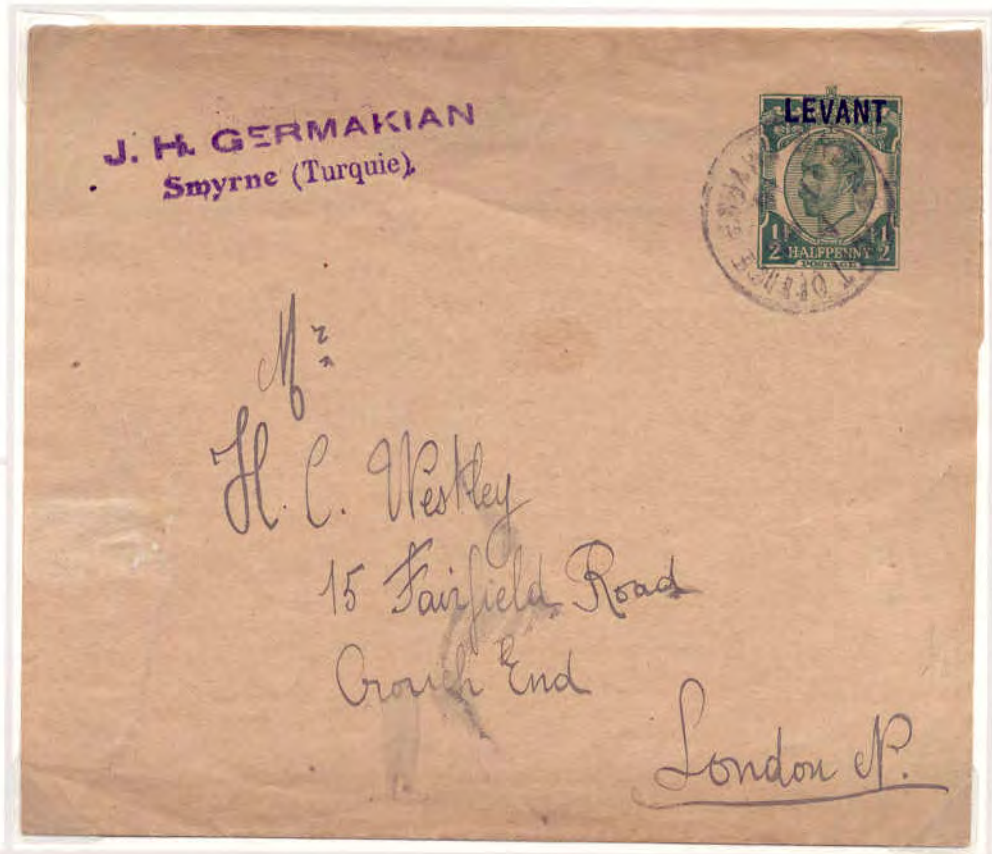 J. H. GERMAKIAN
Smyrne (Turquie)
LEVANT
1/2 1/2
HALFPENNY
POSTAGE
POST OFFICE
Mr
H. C. Westley
15 Fairfield Road
Crouch End
London N.